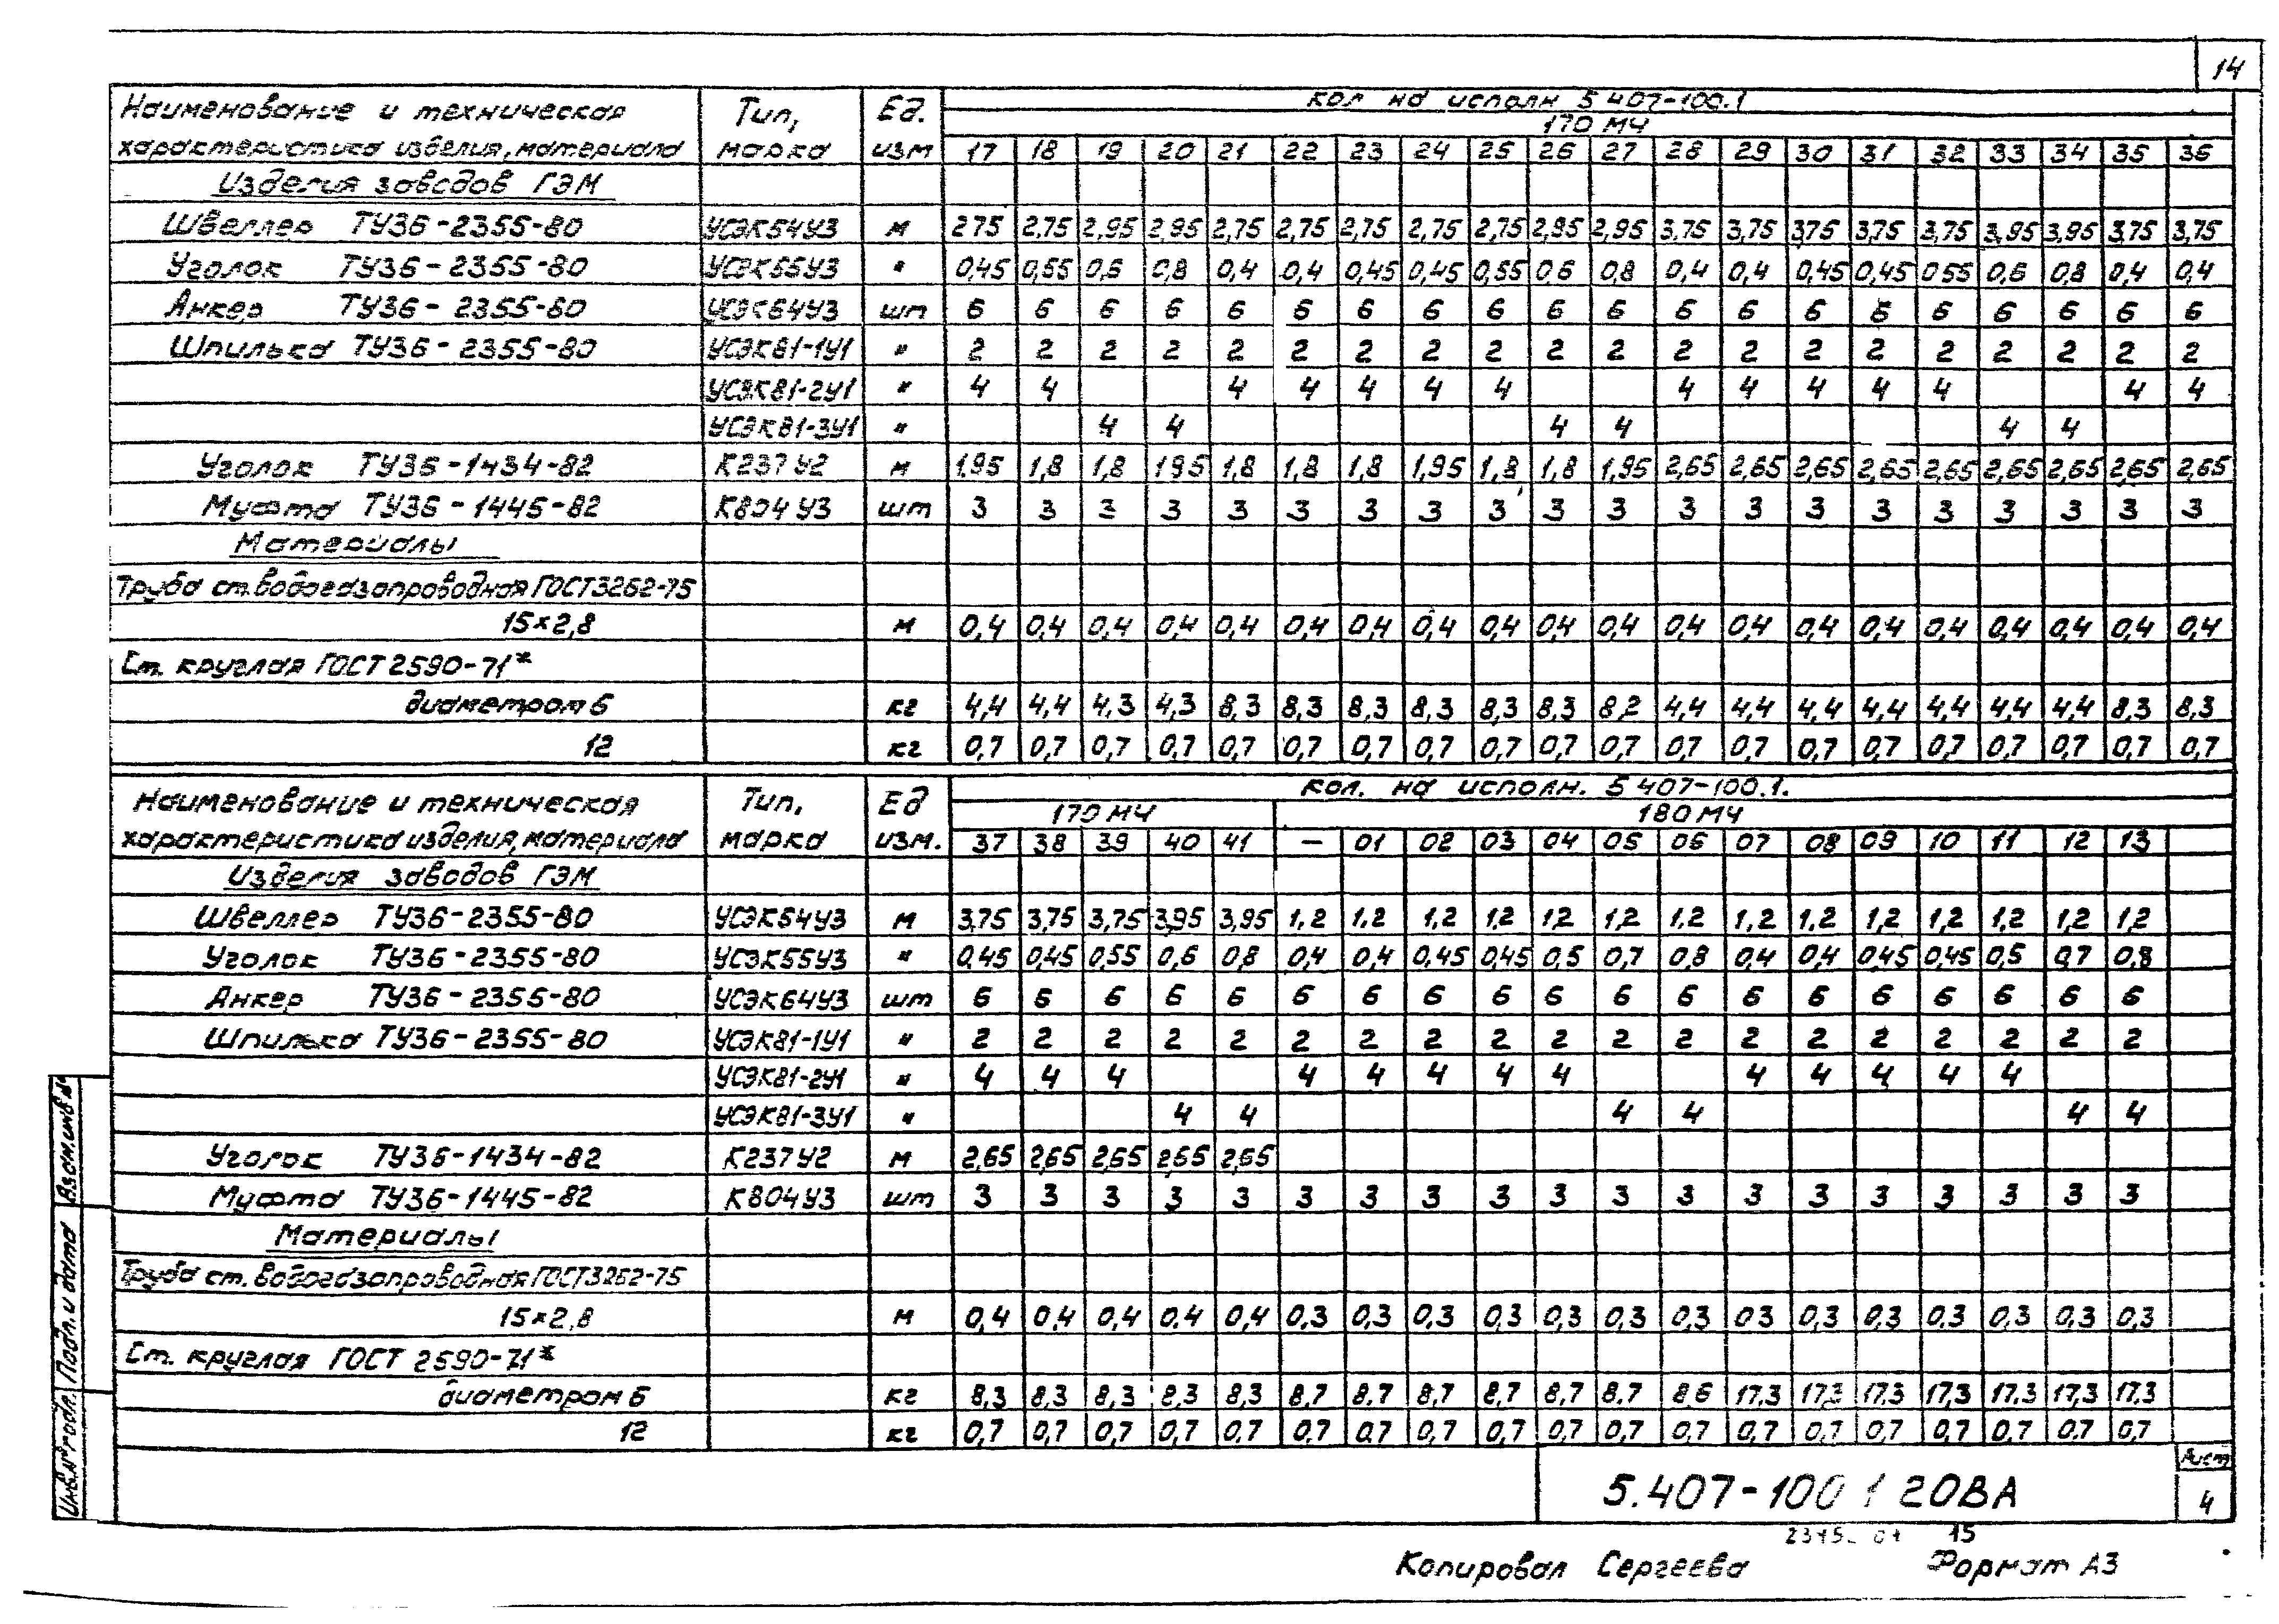 14
Наименование и техническая Тип, Ед. кол на исполн 5 407-100.1
170 МЧ
характеристика изделия, материала марка изм 17 18 19 20 21 22 23 24 25 26 27 28 29 30 31 32 33 34 35 36
Изделия заводов ГЭМ
Швеллер ТУ36-2355-80 УСЭК54У3 м 2 75 2,75 2,95 2,95 2,75 2,75 2,75 2,75 2,75 2,95 2,95 3,75 3,75 375 3,75 3,75 3,95 3,95 3,75 3,75
Уголок ТУ36-2355-80 УСЭК55У3 " 0,45 0,55 0,6 0,8 0,4 0,4 0,45 0,45 0,55 0,6 0,8 0,4 0,4 0,45 0,45 055 0,6 0,8 0,4 0,4
Анкер ТУ36-2355-80 УСЭК64У3 шт 6 6 6 6 6 6 6 6 6 6 6 6 6 6 6 6 6 6 6 6
Шпилька ТУ36-2355-80 УСЭК81-1У1 " 2 2 2 2 2 2 2 2 2 2 2 2 2 2 2 2 2 2 2 2
УСЭК81-2У1 " 4 4 4 4 4 4 4 4 4 4 4 4 4 4
УСЭК81-3У1 " 4 4 4 4 4 4
Уголок ТУ36-1434-82 К237У2 м 1,95 1,8 1,8 195 1,8 1,8 1,8 1,95 1,8 1,8 1,95 2,65 2,65 2,65 2,65 2,65 2,65 2,65 2,65 2,65
Муфта ТУ36-1445-82 К804У3 шт 3 3 3 3 3 3 3 3 3 3 3 3 3 3 3 3 3 3 3 3
Материалы
Труба ст. водогазопроводная ГОСТ 3262-75
15×2,8 м 0,4 0,4 0,4 0,4 0,4 0,4 0,4 0,4 0,4 0,4 0,4 0,4 0,4 0,4 0,4 0,4 0,4 0,4 0,4 0,4
Ст. круглая ГОСТ 2590-71*
диаметром 6 кг 4,4 4,4 4,3 4,3 8,3 8,3 8,3 8,3 8,3 8,3 8,2 4,4 4,4 4,4 4,4 4,4 4,4 4,4 8,3 8,3
12 кг 0,7 0,7 0,7 0,7 0,7 0,7 0,7 0,7 0,7 0,7 0,7 0,7 0,7 0,7 0,7 0,7 0,7 0,7 0,7 0,7
Наименование и техническая Тип, Ед кол. на исполн. 5 407-100.1.
170 МЧ 180 МЧ
характеристика изделия, материала марка изм. 37 38 39 40 41 — 01 02 03 04 05 06 07 08 09 10 11 12 13
Изделия заводов ГЭМ
Швеллер ТУ36-2355-80 УСЭК54У3 м 3,75 3,75 3,75 3,95 3,95 1,2 1.2 1,2 1,2 1,2 1,2 1,2 1,2 1,2 1,2 1,2 1,2 1,2 1,2
Уголок ТУ36-2355-80 УСЭК55У3 " 0,45 0,45 0,55 0,6 0,8 0,4 0,4 0,45 0,45 0,5 0,7 0,8 0,4 0,4 0,45 0,45 0,5 0,7 0,8
Анкер ТУ36-2355-80 УСЭК64У3 шт 6 6 6 6 6 6 6 6 6 6 6 6 6 6 6 6 6 6 6
Шпилька ТУ36-2355-80 УСЭК81-1У1 " 2 2 2 2 2 2 2 2 2 2 2 2 2 2 2 2 2 2 2
УСЭК81-2У1 " 4 4 4 4 4 4 4 4 4 4 4 4 4
УСЭК81-3У1 " 4 4 4 4 4 4
Уголок ТУ36-1434-82 К237У2 м 2,65 2,65 2,65 2,65 2,65
Муфта ТУ36-1445-82 К804У3 шт 3 3 3 3 3 3 3 3 3 3 3 3 3 3 3 3 3 3 3
Материалы
Труба ст. водогазопроводная ГОСТ 3262-75
15×2,8 м 0,4 0,4 0,4 0,4 0,4 0,3 0,3 0,3 0,3 0,3 0,3 0,3 0 3 0,3 0,3 0,3 0,3 0,3 0,3
Ст. круглая ГОСТ 2590-71*
диаметром 6 кг 8,3 8,3 8,3 8,3 8,3 8,7 8,7 8,7 8,7 8,7 8,7 8 6 17,3 17,3 17,3 17,3 17,3 17,3 17,3
12 кг 0,7 0,7 0,7 0,7 0,7 0,7 0,7 0,7 0,7 0,7 0,7 0,7 0,7 0,7 0,7 0,7 0,7 0,7 0,7
Взам.инв.№
Подп. и дата
Инв.№ подл.
5.407-100 1 20ВА
Лист
4
15
Копировал Сергеева Формат А3